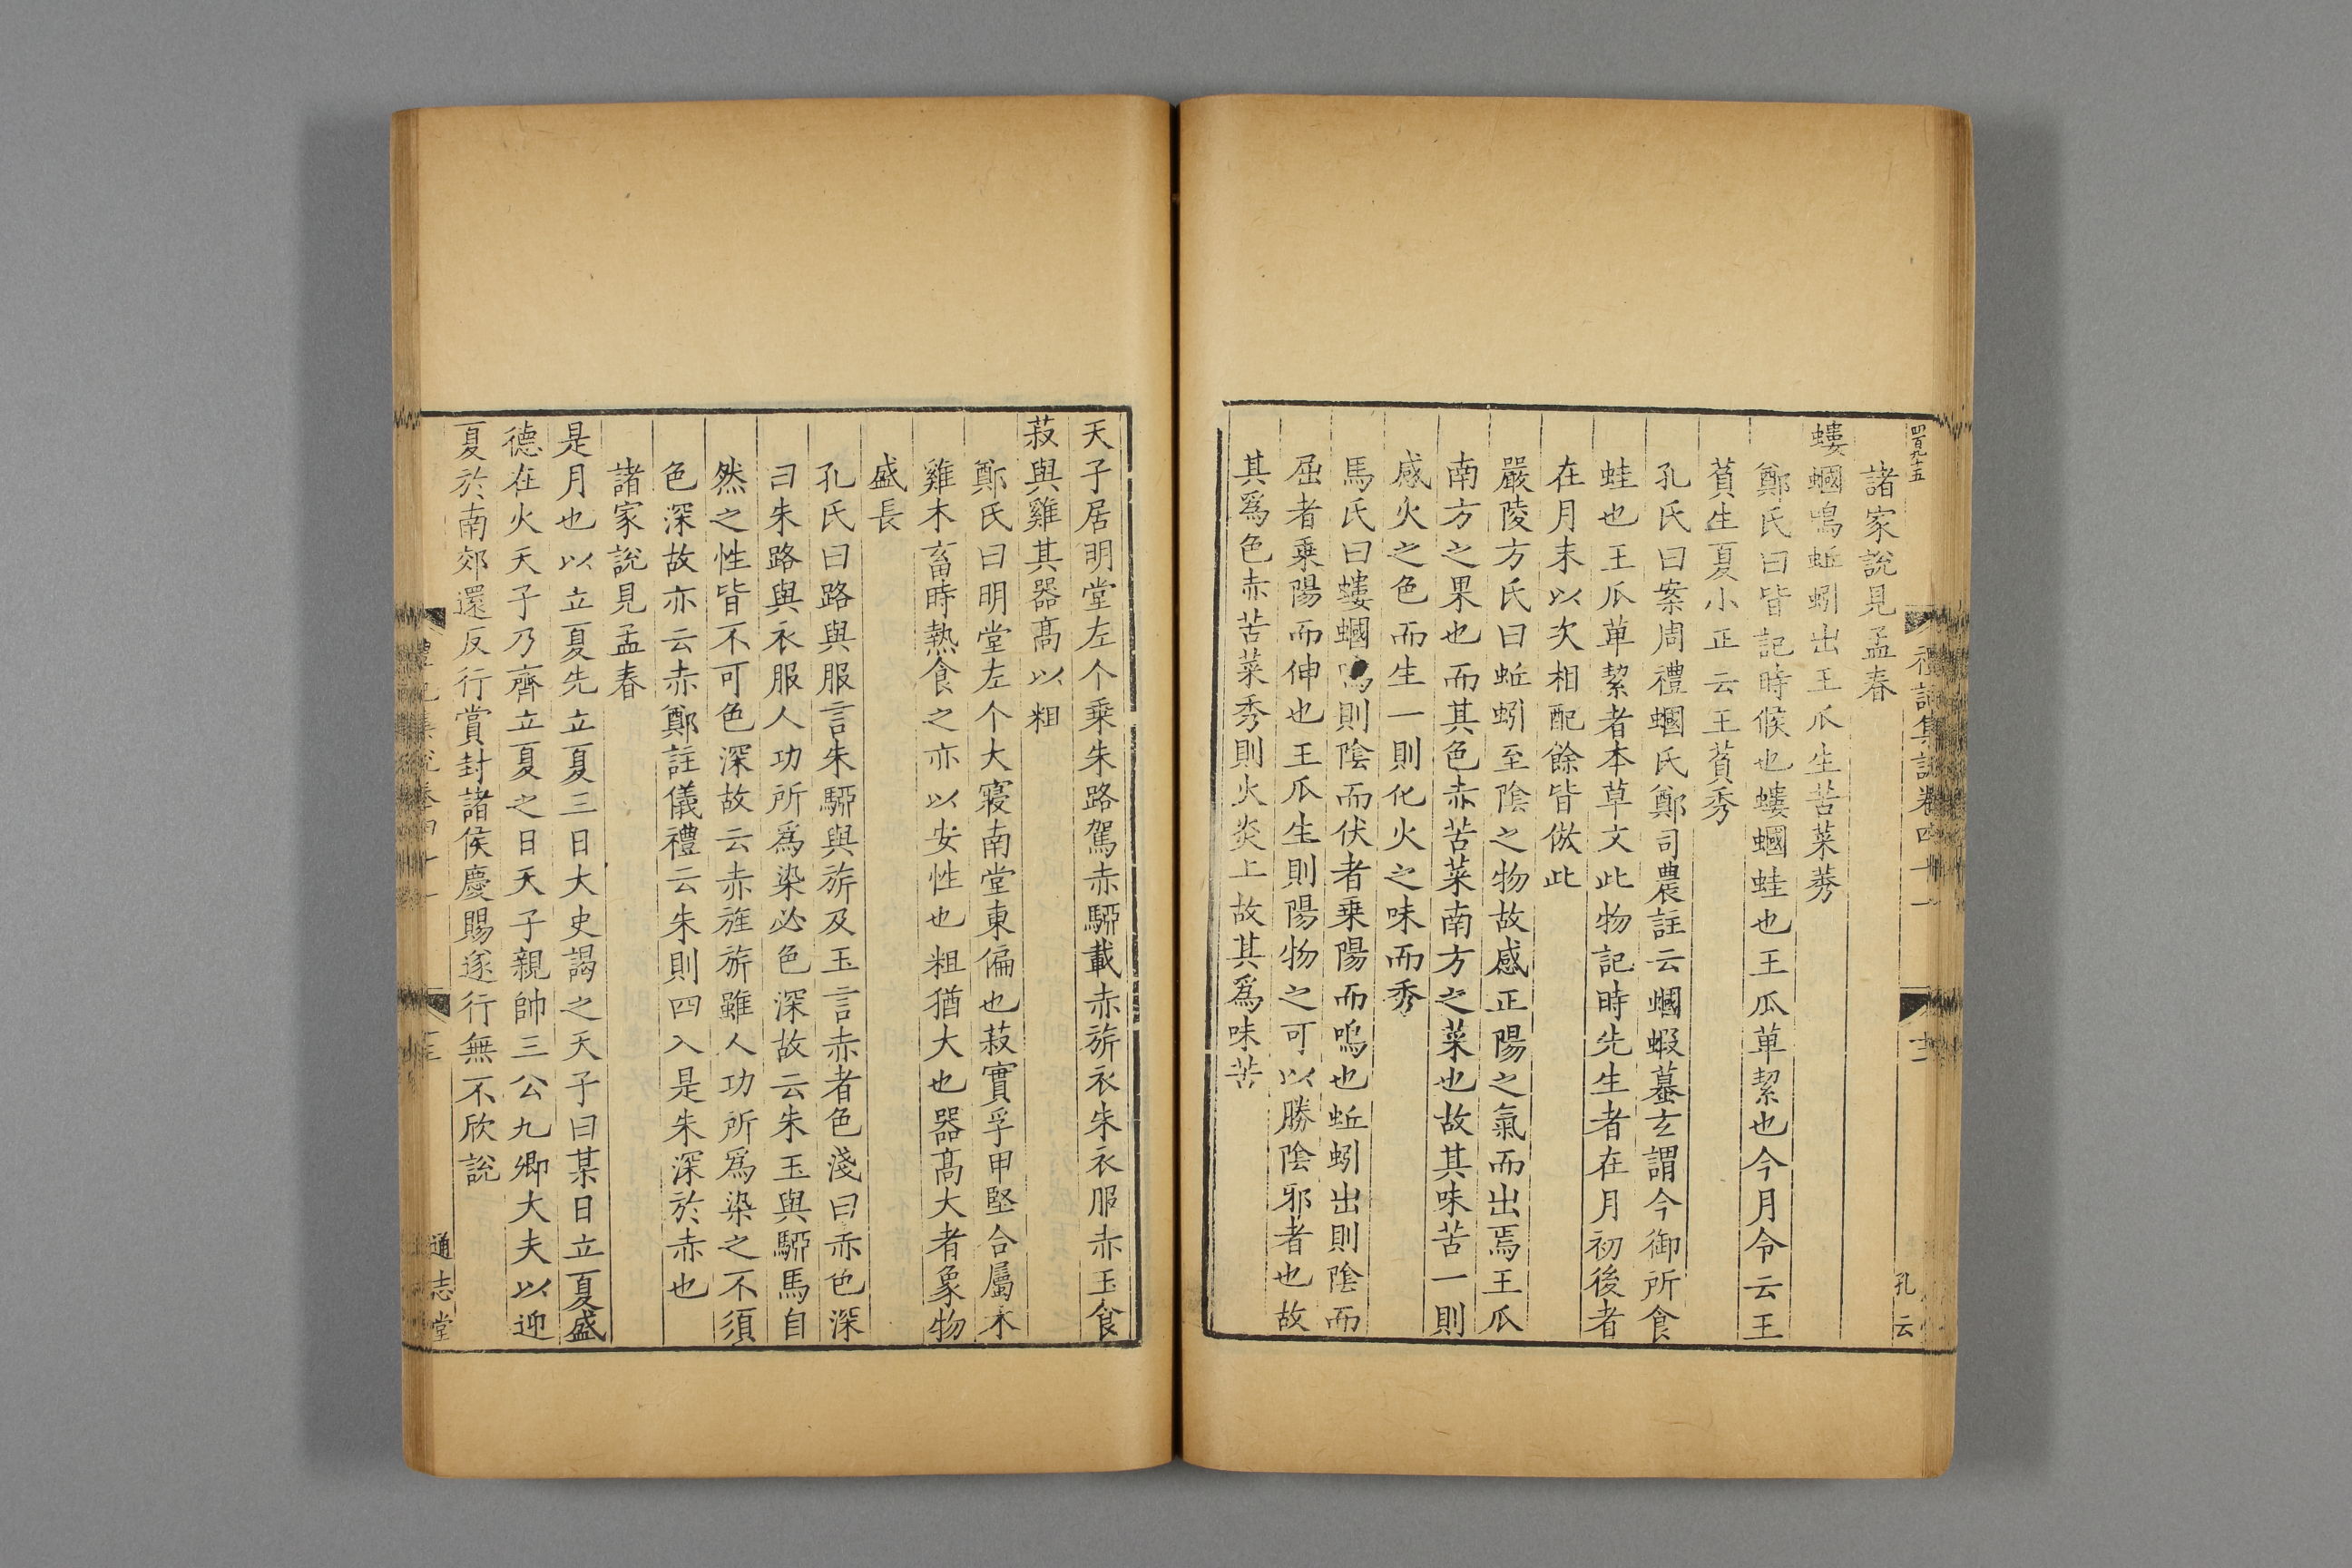 四百九十五
禮記集說卷四十一
十二
孔云
諸家說見孟春
螻蟈鳴蚯蚓出王瓜生苦菜莠
鄭氏曰皆記時候也螻蟈蛙也王瓜萆挈也今月令云王
萯生夏小正云王萯秀
孔氏曰案周禮蟈氏鄭司農註云蟈蝦蟇玄謂今御所食
蛙也王瓜萆挈者本草文此物記時先生者在月初後者
在月末以次相配餘皆倣此
嚴陵方氏曰蚯蚓至陰之物故感正陽之氣而出焉王瓜
南方之果也而其色赤苦菜南方之菜也故其味苦一則
感火之色而生一則化火之味而秀
馬氏曰螻蟈鳴則陰而伏者乗陽而鳴也蚯蚓出則陰而
屈者乗陽而伸也王瓜生則陽物之可以勝陰邪者也故
其爲色赤苦菜秀則火炎上故其爲味苦
天子居明堂左个乗朱路駕赤駵載赤旂衣朱衣服赤玉食
菽與雞其器髙以粗
鄭氏曰明堂左个大寢南堂東偏也菽實孚甲堅合屬水
雞木畜時熱食之亦以安性也粗猶大也器髙大者象物
盛長
孔氏曰路與服言朱駵與旂及玉言赤者色淺曰赤色深
曰朱路與衣服人功所爲染必色深故云朱玉與駵馬自
然之性皆不可色深故云赤旌旂雖人功所爲染之不須
色深故亦云赤鄭註儀禮云朱則四入是朱深於赤也
諸家說見孟春
是月也以立夏先立夏三日大史謁之天子曰某日立夏盛
德在火天子乃齊立夏之日天子親帥三公九卿大夫以迎
夏於南郊還反行賞封諸侯慶賜遂行無不欣說
禮記集說卷四十一
通志堂